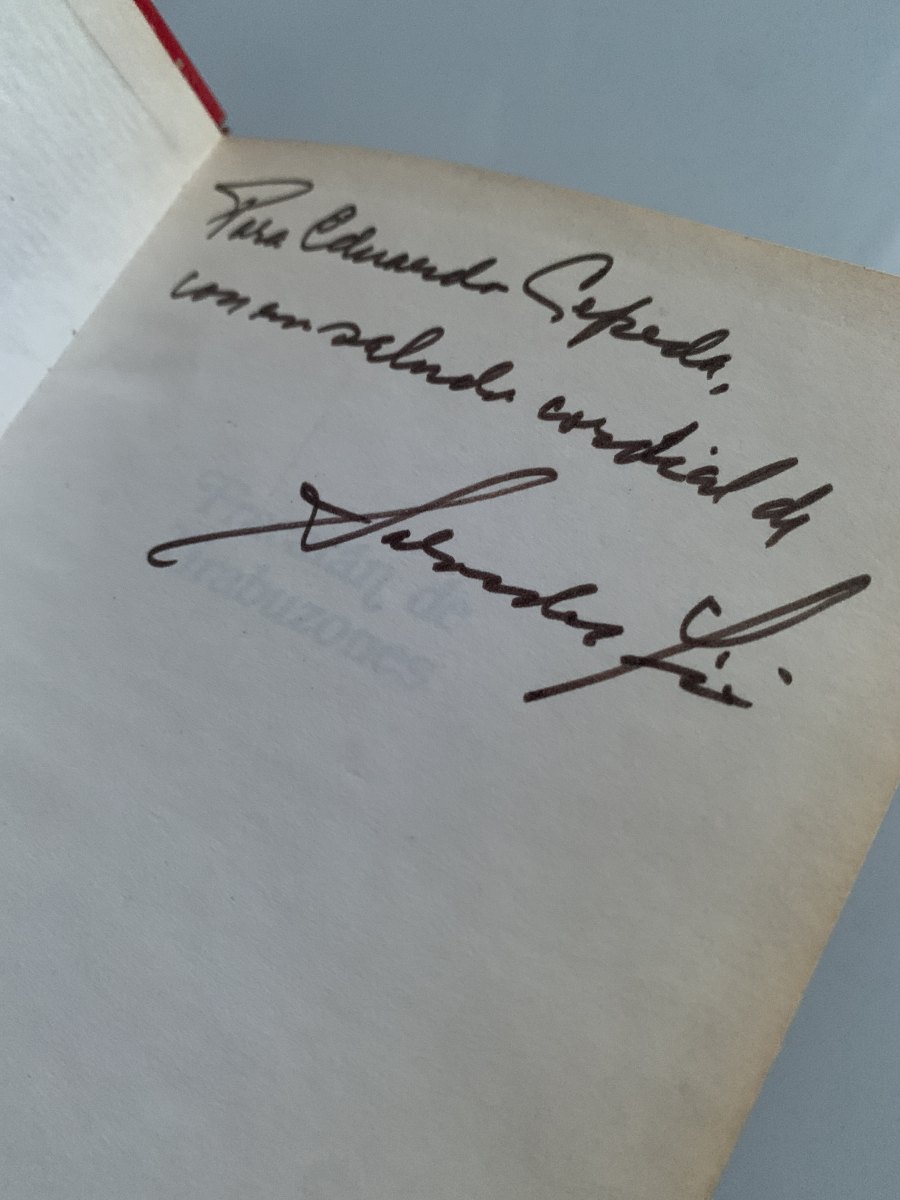 Para Eduardo Cepeda,
con un saludo cordial de
Salvador
de
Tirabuzones